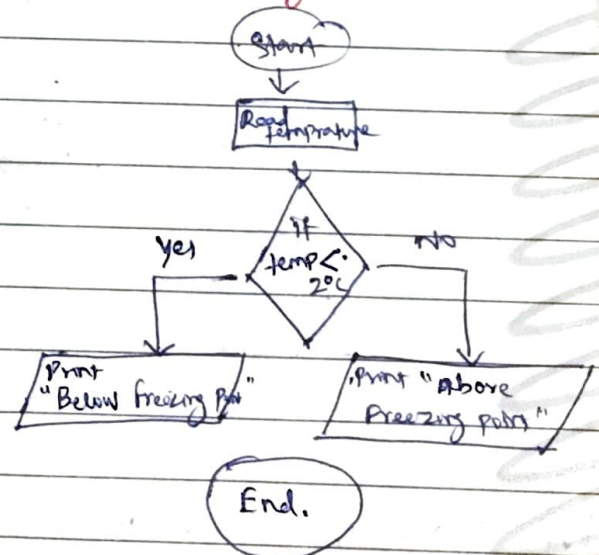 Start
Read
temprature
if
temp <
2°C
Yes
No
Print
"Below freezing
Print "Above
Freezing point"
End.